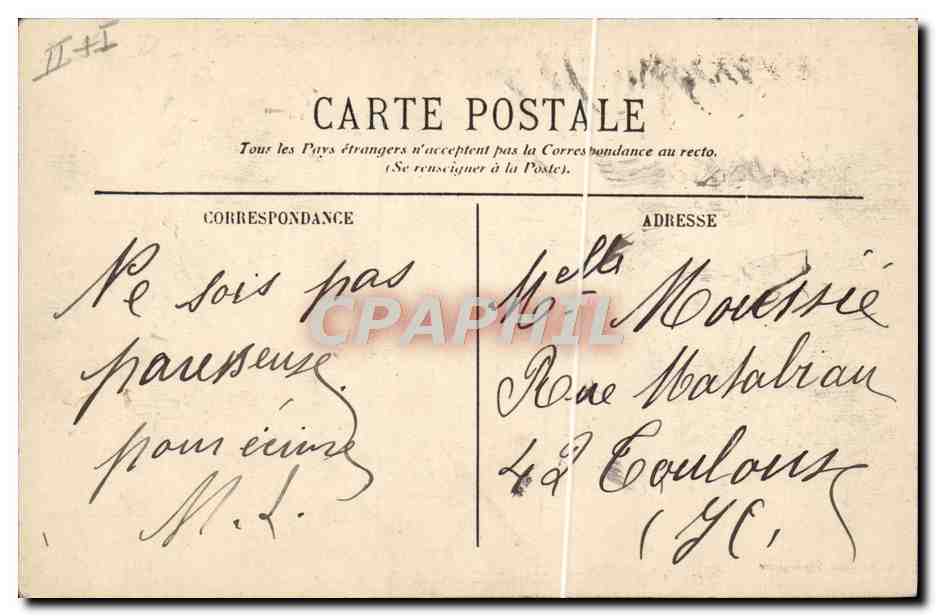 II + I
CARTE POSTALE
Tous les Pays étrangers n'acceptent pas la Correspondance au recto.
(Se renseigner à la Poste).
CORRESPONDANCE
Ne sois pas
paresseuse
pour écrire
M. L.
ADRESSE
Melle Moussié
Rue Matabiau
42 Toulouse
(H)
CPAPHIL